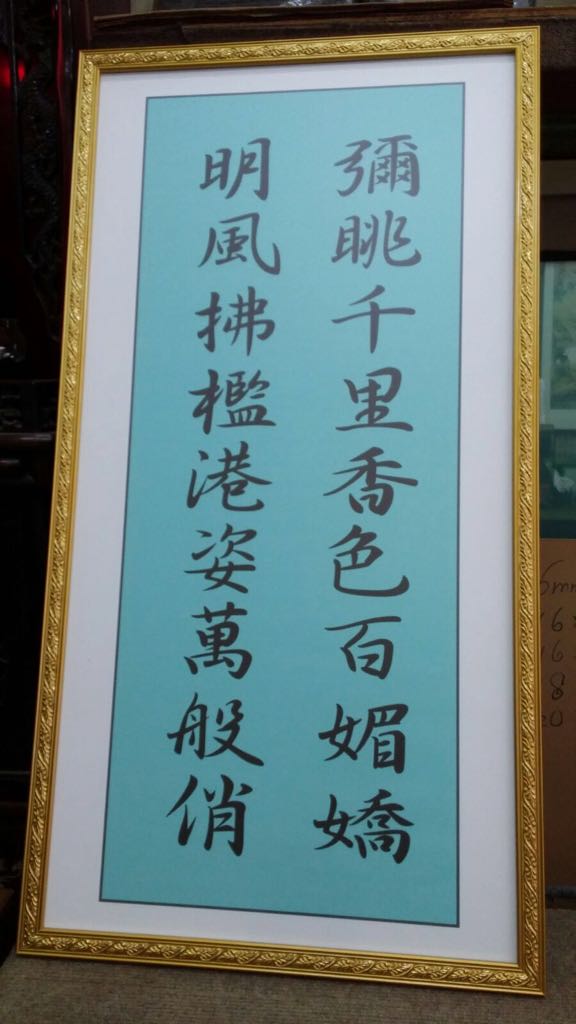 彌眺千里香色百媚嬌
明風拂檻港姿萬般俏
6mm